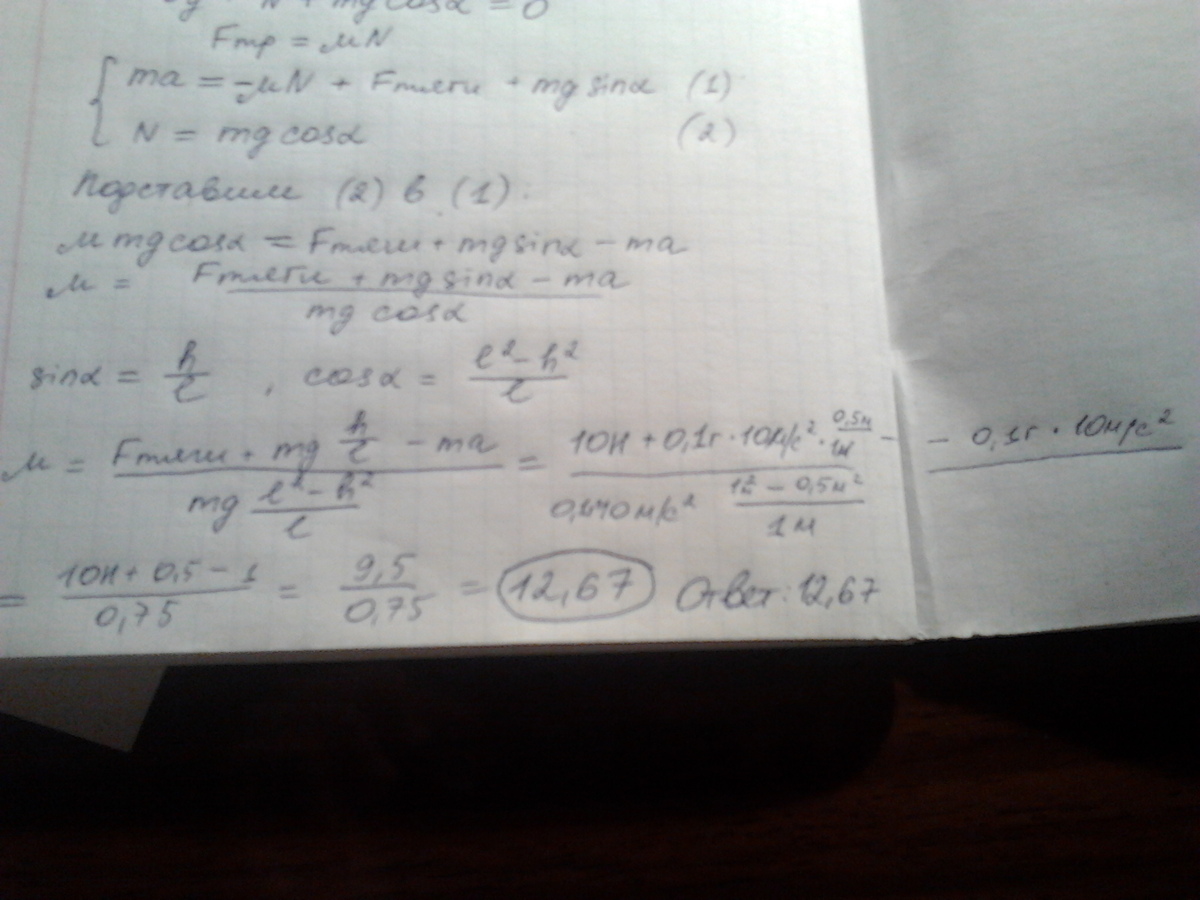 N + mg cosα = 0
Fтр = μN
ma = -μN + Fтяги + mg sinα (1)
N = mg cosα (2)
Подставим (2) в (1):
μ mg cosα = Fтяги + mg sinα - ma
μ = (Fтяги + mg sinα - ma) / (mg cosα)
sinα = h/l , cosα = (l² - h²)/l
μ = (Fтяги + mg h/l - ma) / (mg (l² - h²)/l) = (10Н + 0,1г · 10м/с² · 0,5м/1м - - 0,1г · 10м/с²) / (0,1·10м/с² (1м² - 0,5м²)/1м)
= (10Н + 0,5 - 1)/0,75 = 9,5/0,75 = 12,67 Ответ: 12,67